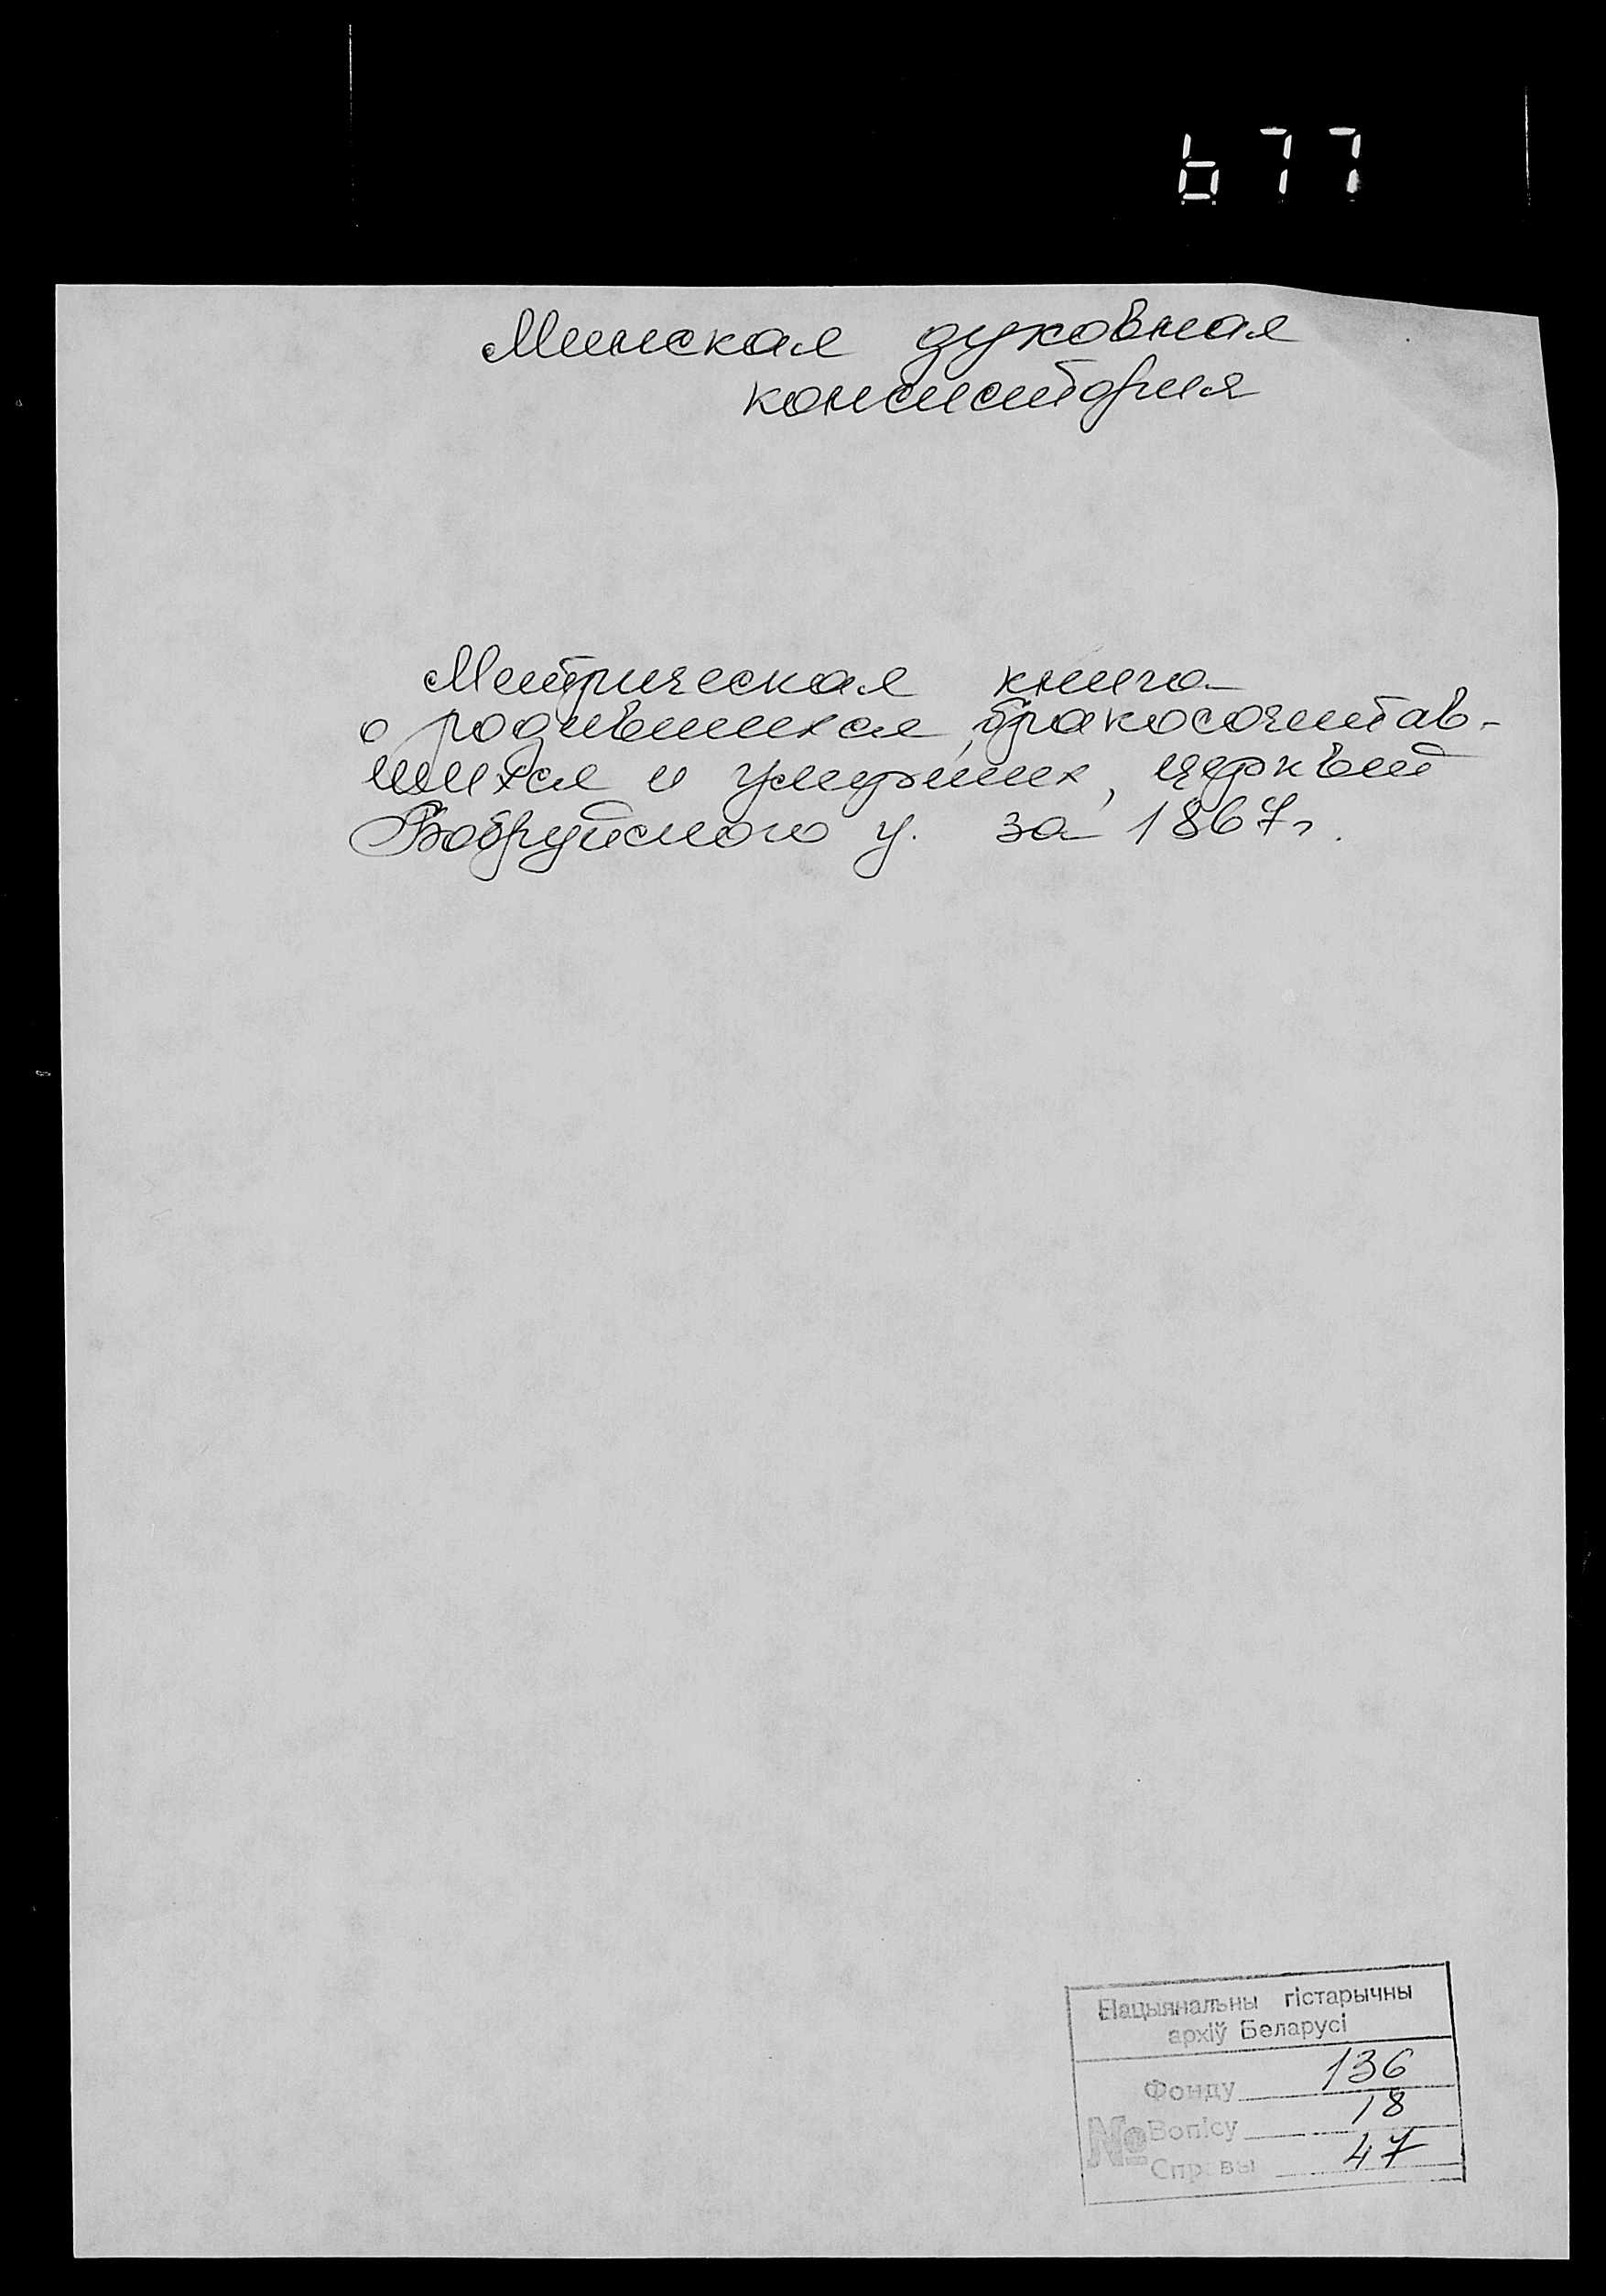 677
Минская духовная
консистория
Метрическая книга
о родившихся, бракосочетав-
шихся и умерших, церквей
Бобруйского у. за 1867 г.
Нацыянальны гістарычны
архіў Беларусі
Фонду 136
№ Вопісу 18
Справы 47